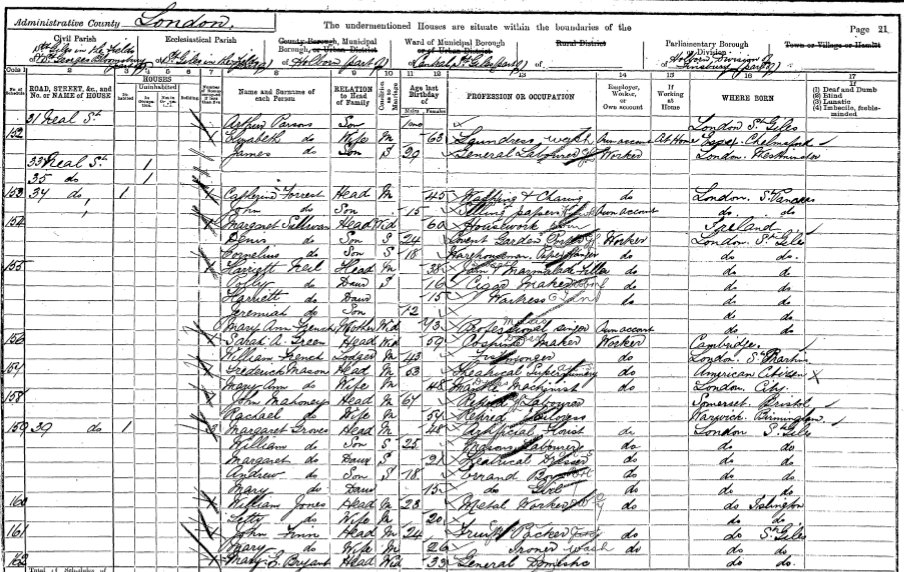 Administrative County London
The undermentioned Houses are situate within the boundaries of the
Page 21
Civil Parish
Ecclesiastical Parish
County Borough, Municipal Borough, or Urban District
Ward of Municipal Borough or of Urban District
Rural District
Parliamentary Borough or Division
Town or Village or Hamlet
St Giles in the Fields
of Holborn (part of)
of
Holborn Division of Finsbury (part of)
of
1 2 3 4 5 6 7 8 9 10 11 12 13 14 15 16 17
No. of Schedule
ROAD, STREET, &c., and No. or NAME of HOUSE
HOUSES
Inhabited
Uninhabited
Name and Surname of each Person
RELATION to Head of Family
Condition as to Marriage
Age last Birthday of
Males Females
PROFESSION OR OCCUPATION
Employer, Worker, or Own account
If Working at Home
WHERE BORN
If (1) Deaf and Dumb (2) Blind (3) Lunatic (4) Imbecile, feeble-minded
31 Neal St Arthur Parsons Son London St Giles
152 Elizabeth do Wife M 63 Laundress wash Own account At Home Essex Chelmsford
James do Son S 29 General Labourer Worker London Westminster
33 Neal St 1
35 do 1
153 37 do 1 Catherine Forrest Head M 45 Washing & Charing do London St Pancras
John do Son 15 Selling papers Own account do do
154 Margaret Sullivan Head Wid 60 Housework Ireland
Denis do Son S 24 Covent Garden Porter Worker London St Giles
Cornelius do Son S 18 Warehouseman Paper do do do
155 Harriett Neil Head M 38 Jam & Marmalade Filler do do do
Polly do Daur S 16 Cigar Maker do do do
Harriett do Daur 15 Waitress do do do
Jeremiah do Son 12 do do
Mary Ann French Mother Wid 73 Professional singer Own account do do
156 Sarah A. Green Head Wid 59 Maker Worker Cambridge
William French Lodger M 43 do London St Martins
157 Frederick Mason Head M 53 Theatrical do American Citizen
Mary Ann do Wife M 48 Mantle Machinist do London City
158 John Mahoney Head M 67 Labourer Somerset Bristol
Rachael do Wife M 54 Warwick Birmingham
159 39 do 1 Margaret Groves Head M 48 Artificial Florist do London St Giles
William do Son S 25 Masons Labourer do do do
Margaret do Daur S 21 Theatrical Dresser do do do
Andrew do Son S 18 Errand Boy do do do
Mary do Daur 15 do Girl do do do
160 William Jones Head M 23 Metal Worker do do Islington
Letty do Wife M 20 do do
161 John Finn Head M 24 Fruit Packer do do St Giles
Mary do Wife M 26 Ironer wash do do do
162 Mary Bryant Head Wid 33 General Domestic do do do
Total of Schedules of